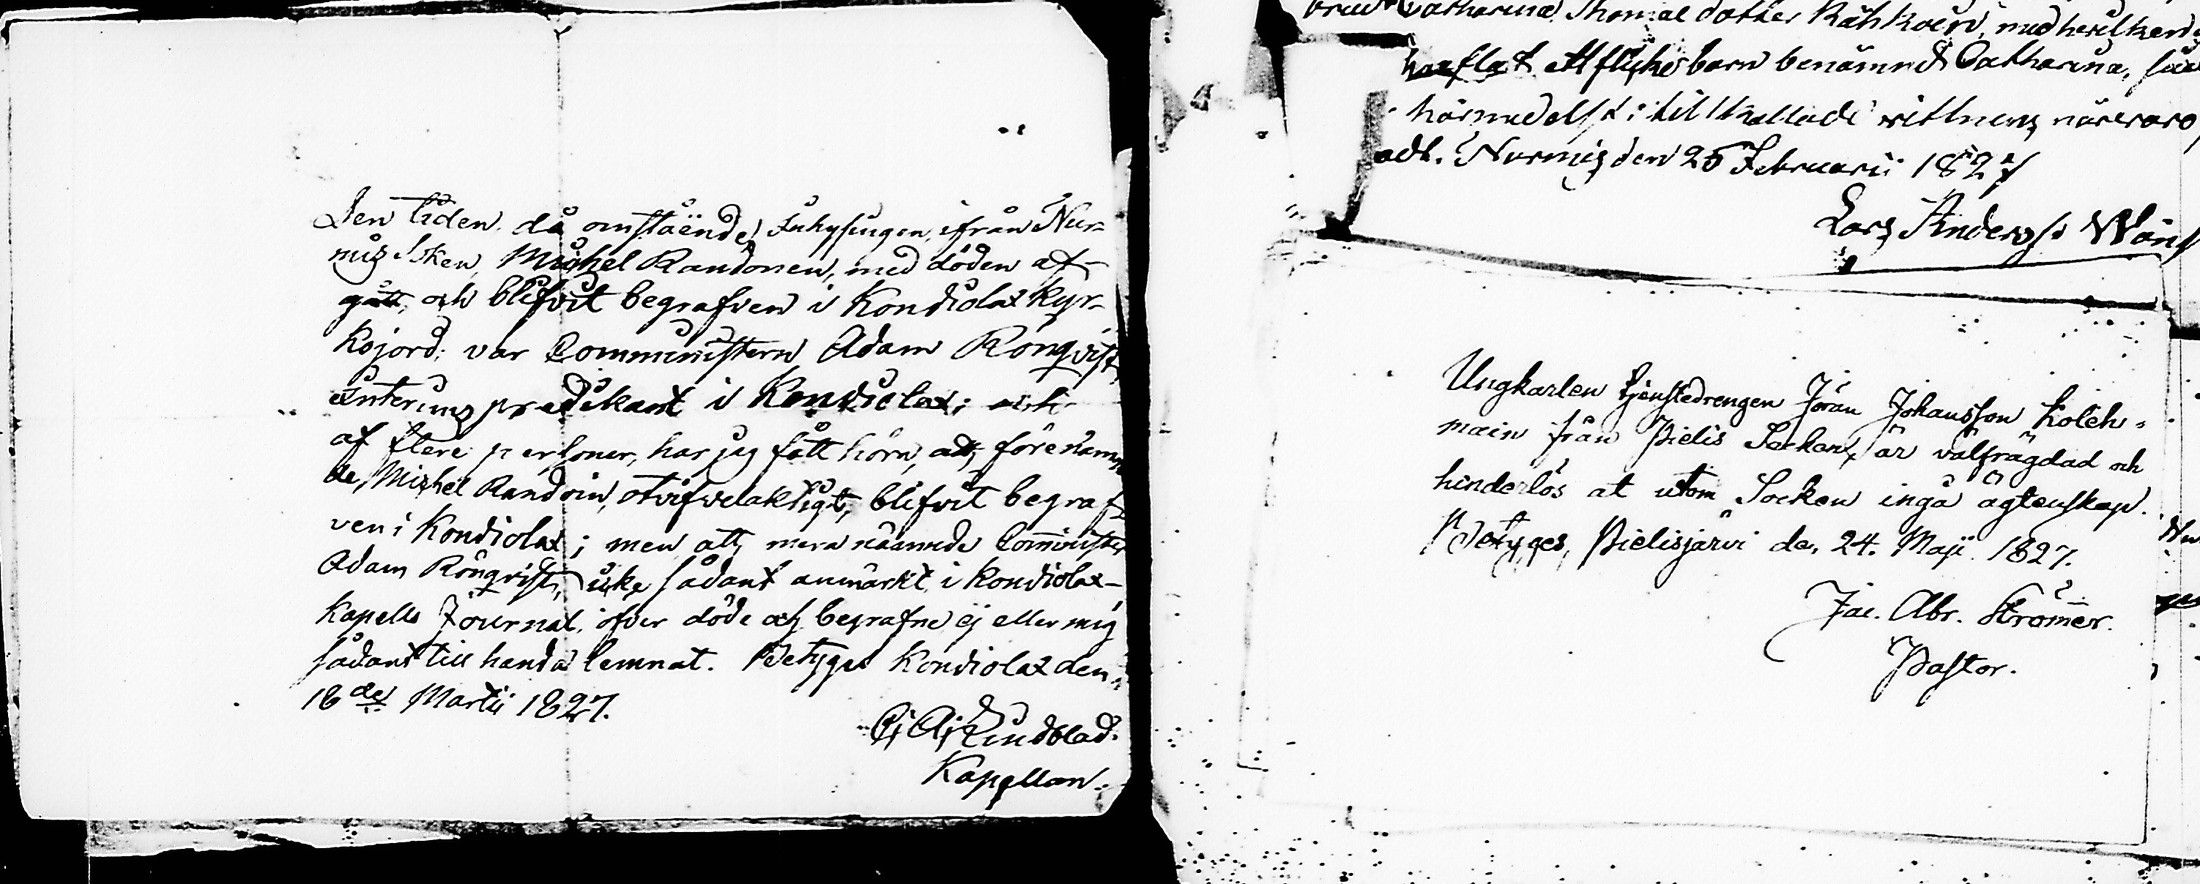 Den tiden då omstäende Inhysingen, ifrån Nur-
mis Soken, Michel Randonen, med döden af-
gått, och blifvit begrafven i Kondiolax Kyr-
kojord; var Comministern Adam Rönqvist,
interims predikant i Kondiolax; och
af flere personer, har jag fått höra, att, förenämn-
de, Michel Randoin, otvifvelaktigt, blifvit begraf-
ven i Kondiolax; men att, mera nämnde Comminister
Adam Rönqvist, icke sådant anmärkt i Kondiolax-
Kapells Journal, öfver döde och begrafne, ej eller mig
sådant till handa lemnat. Betygar Kondiolax den
18de Martii 1827.
Lindblad.
Kapellan.
Catharina Thomae dotter Kähkoin, med hvilken
haflat ett flicke barn benämnd Catharina, så
härmedelst i tillkallade vittnens närvaro
Nurmis den 26 Februarii 1827
Lars Anders
Ungkarlen tjenstedrengen Jöran Johansson Koleh-
main från Pielis Socken, är välfrägdad och
hinderlös at utom Socken ingå ägtenskap.
Betyges, Pielisjärvi de, 24. Maji 1827.
Jac. Abr. Strömer.
Pastor.